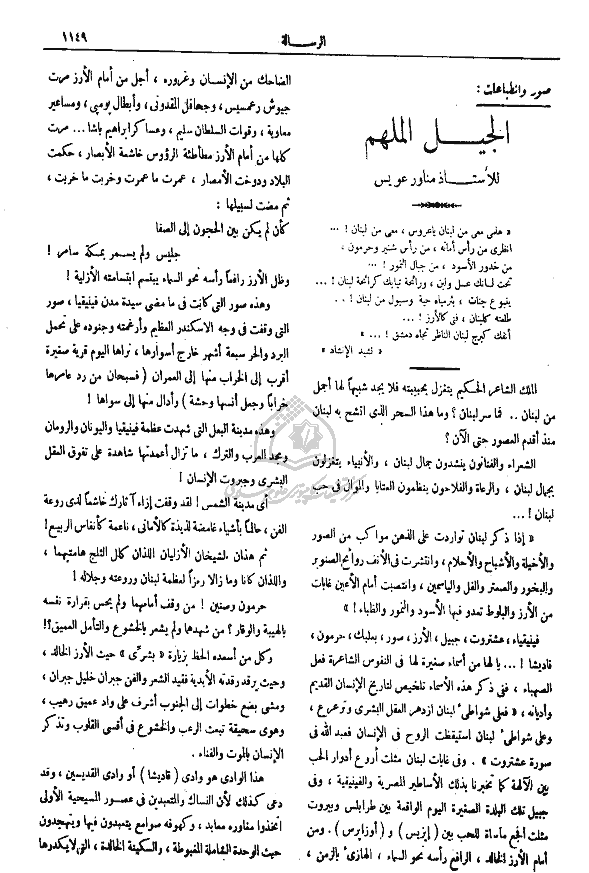 الرسالة
١١٤٩
صور وانطباعات :
الجبل الملهم
للأستاذ مناور عويس
« هلمى معى من لبنان ياعروس ، معى من لبنان ! ...
انظرى من رأس أمانه ، من رأس شنير وحرمون ،
من خدور الأسود . من جبال النمور ! ...
تحت لسانك عسل ولبن ، ورائحة ثيابك كرائحة لبنان ! ...
ينبوع جنات ، بئر مياه حية وسيول من لبنان ! ..
طلعته كلبنان ، فتى كالأرز ! ...
أنفك كبرج لبنان الناظر تجاه دمشق ! ... »
« نشيد الإنشاد »
الملك الشاعر الحكيم يتغزل بحبيبته فلا يجد شبيهاً لها أجمل
من لبنان .. فما سر لبنان ؟ وما هذا السحر الذى اتشح به لبنان
منذ أقدم العصور حتى الآن ؟
الشعراء والفنانون ينشدون جمال لبنان ، والأنبياء يتغزلون
بجمال لبنان ، والرعاة والفلاحون ينظمون العتابا والموال فى حب
لبنان ! ...
« إذا ذكر لبنان تواردت على الذهن مواكب من الصور
والأخيلة والأشباح والأحلام ، وانتشرت فى الأنف روائح الصنوبر
والبخور والصعتر والفل والياسمين ، وانتصبت أمام الأعين غابات
من الأرز والبلوط تعدو فيها الأسود والنمور والظباء ! »
فينيقياء ، عشتروت ، جبيل ، الأرز ، صور ، بعلبك ، حرمون ،
قاديشا ! ... يا لها من أسماء صغيرة لها فى النفوس الشاعرة فعل
الصهباء ، ففى ذكر هذه الأسماء تلخيص لتاريخ الإنسان القديم
وأديانه ، « فعلى شواطئ لبنان ازدهر العقل البشرى وترعرع ،
وعلى شواطئ لبنان استيقظت الروح فى الإنسان فعبد الله فى
صورة عشتروت » . وفى غابات لبنان مثلت أروع أدوار الحب
بين الآلهة كما تخبرنا بذلك الأساطير المصرية والفينيقية ، وفى
جبيل تلك البلدة الصغيرة اليوم الواقعة بين طرابلس وبيروت
مثلت أفجع مأساة للحب بين ( إيزيس ) و ( أوزايرس ) . ومن
أمام الأرز الخالد ، الرافع رأسه نحو السماء ، الهازئ بالزمن ،
الضاحك من الإنسان وغروره ، أجل من أمام الأرز مرت
جيوش رعمسيس ، وجحافل المقدونى ، وأبطال بومبى ، ومساعير
معاوية ، وقوات السلطان سليم ، وعساكر ابراهيم باشا ... مرت
كلها من أمام الأرز مطأطئة الرؤوس خاشعة الأبصار ، حكمت
البلاد ودوخت الأمصار ، عمرت ما عمرت وخربت ما خربت ،
ثم مضت لسبيلها :
كأن لم يكن بين الحجون إلى الصفا
جليس ولم يسمر بمكة سامر !
وظل الأرز رافعاً رأسه نحو السماء يبتسم ابتسامته الأزلية !
وهذه صور التى كانت فى ما مضى سيدة مدن فينيقيا ، صور
التى وقفت فى وجه الاسكندر العظيم وأرغمته وجنوده على تحمل
البرد والحر سبعة أشهر خارج أسوارها ، نراها اليوم قرية صغيرة
أقرب إلى الخراب منها إلى العمران ( فسبحان من رد عامرها
خراباً وجعل أنسها وحشة ) وأدال منها إلى سواها !
وهذه مدينة البعل التى شهدت عظمة فينيقيا واليونان والرومان
ومجد العرب والترك ، ما تزال أعمدتها شاهدة على تفوق العقل
البشرى وجبروت الإنسان !
أى مدينة الشمس ! لقد وقفت إزاء آثارك خاشعاً لدى روعة
الفن ، حالماً بأشياء غامضة لذيذة كالأمانى ، ناعمة كأنفاس الربيع !
ثم هذان الشيخان الأزليان اللذان كلل الثلج هامتيهما ،
واللذان كانا وما زالا رمزاً لعظمة لبنان وروعته وجلاله !
حرمون وصنين ! من وقف أمامهما ولم يحس بقرارة نفسه
بالهيبة والوقار ؟ من شهدها ولم يشعر بالخشوع والتأمل العميق ؟!
وكل من أسعده الحظ بزيارة « بشرّى » حيث الأرز الخالد ،
وحيث يرقد رقدته الأبدية فقيد الشعر والفن جبران خليل جبران ،
ومشى بضع خطوات إلى الجنوب أشرف على واد عميق رهيب ،
وهوى سحيقة تبعث الرعب والخشوع فى أقسى القلوب وتذكر
الإنسان بالموت والفناء .
هذا الوادى هو وادى ( قاديشا ) أو وادى القديسين ، وقد
دعى كذلك لأن النساك والمتعبدين فى عصور المسيحية الأولى
اتخذوا مغاوره معابد ، وكهوفه صوامع يتعبدون فيها ويتهجدون
حيث الوحدة الشاملة المغبوطة ، والسكينة الخالدة ، التى لا يكدرها